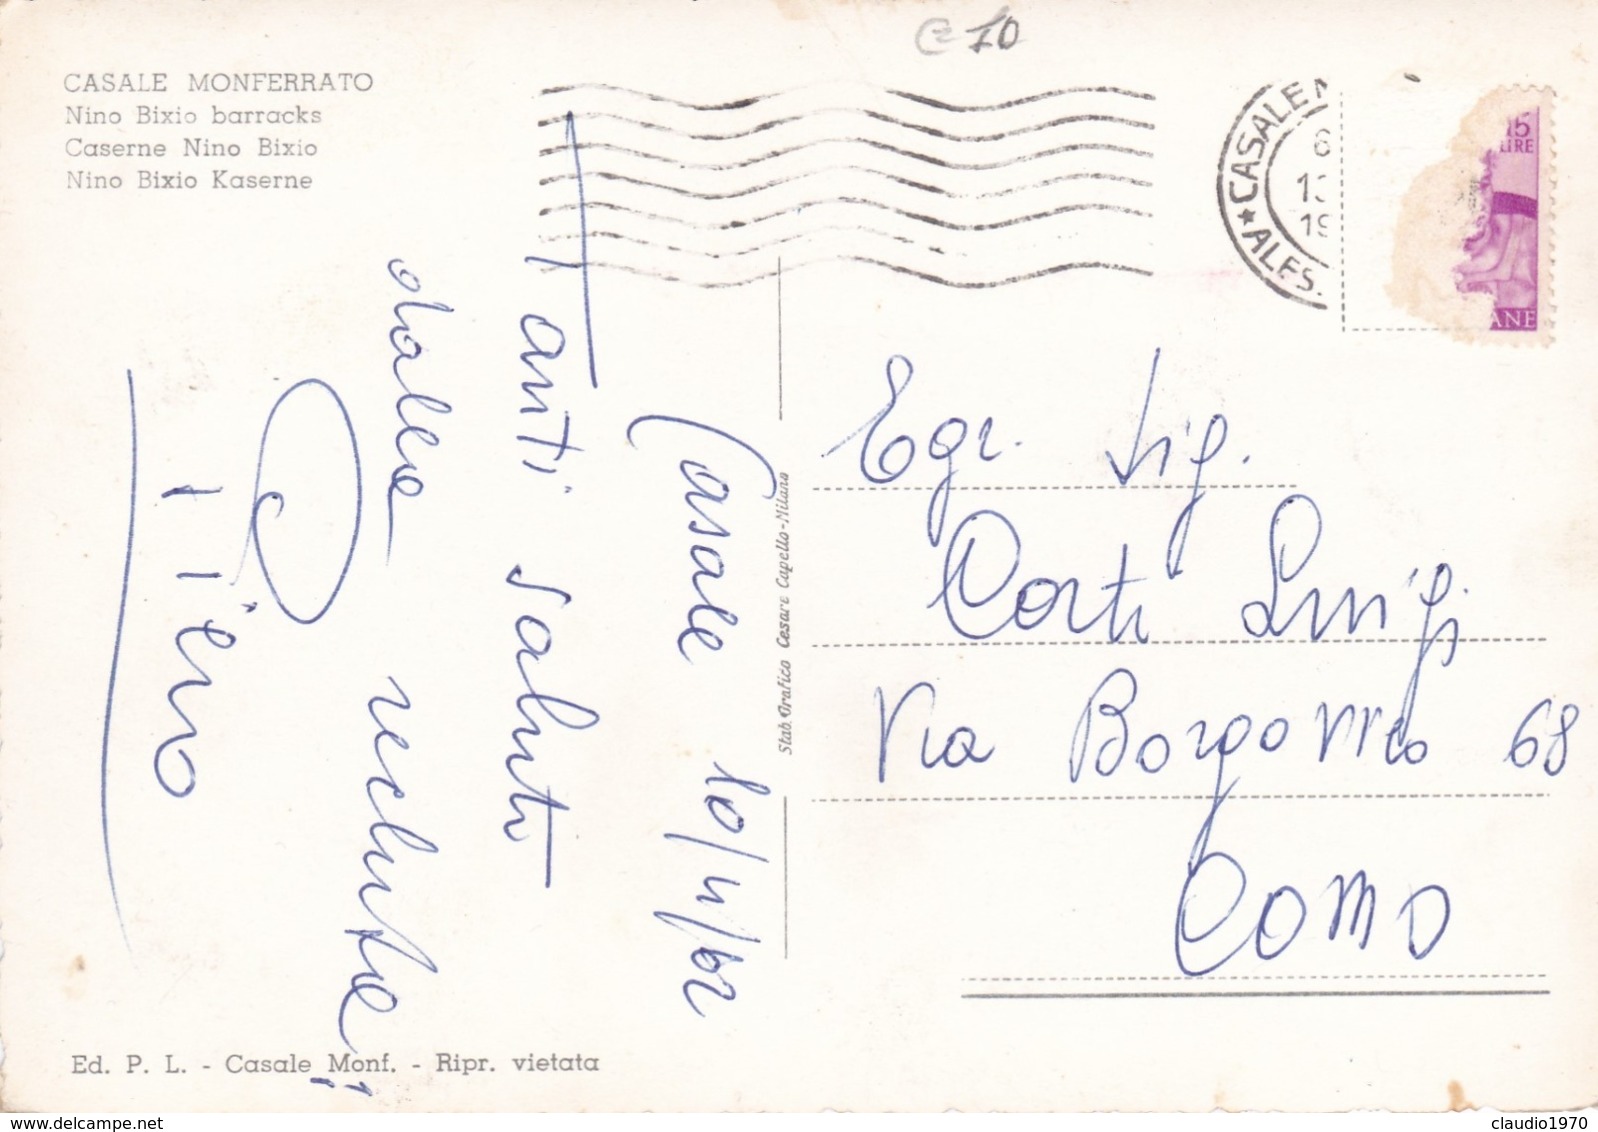 € 10
CASALE MONFERRATO
Nino Bixio barracks
Caserne Nino Bixio
Nino Bixio Kaserne
★ CASALE M
ALES.
6
13
19
15
LIRE
ANE
Casale 10/11/62
Tanti saluti
dalla recluta!!
Piero
Stab. Grafico Cesare Capello-Milano
Egr. Sig.
Corti Luigi
Via Borgovico 68
Como
Ed. P. L. - Casale Monf. - Ripr. vietata
delcampe.net
claudio1970